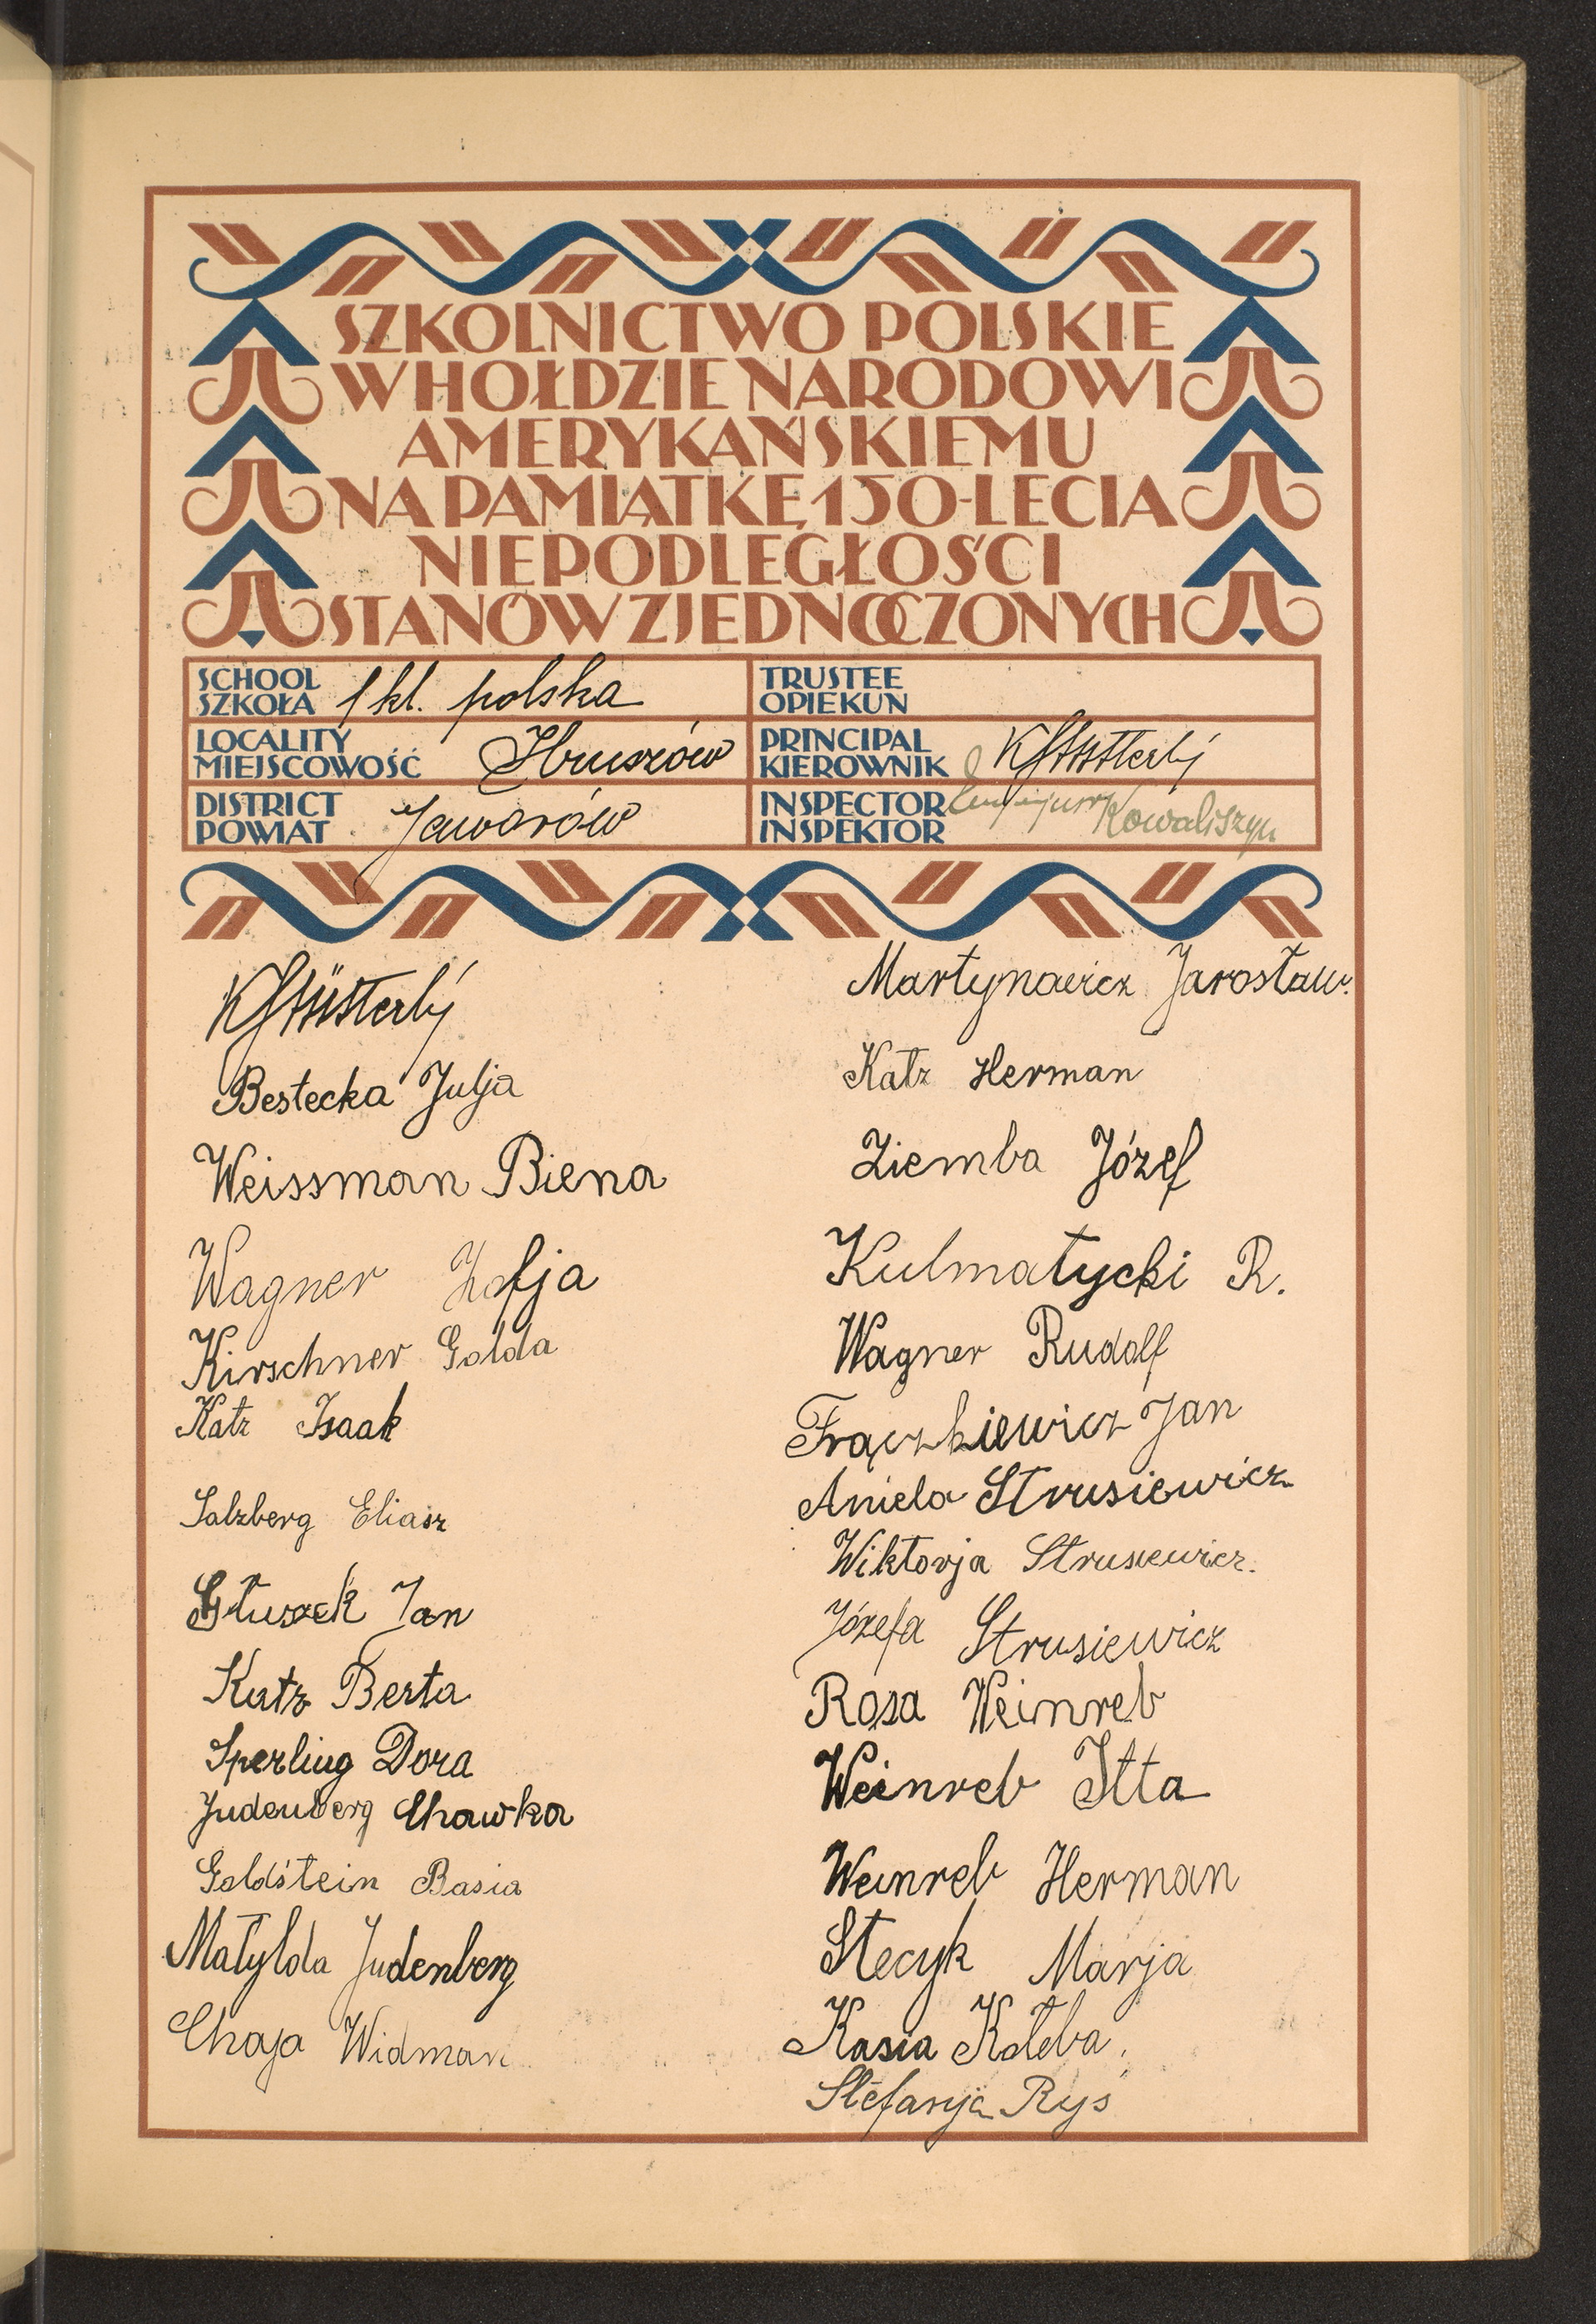 SZKOLNICTWO POLSKIE
W HOŁDZIE NARODOWI
AMERYKAŃSKIEMU
NA PAMIĄTKĘ 150-LECIA
NIEPODLEGŁOŚCI
STANÓW ZJEDNOCZONYCH
SCHOOL
SZKOŁA 1 kl. polska
TRUSTEE
OPIEKUN
LOCALITY
MIEJSCOWOŚĆ Hruszów
PRINCIPAL
KIEROWNIK
DISTRICT
POWIAT Jaworów
INSPECTOR Kowaliszyn
INSPEKTOR
Bestecka Julja
Weissman Biena
Wagner Zofja
Kirschner Golda
Katz Isaak
Salzberg Eliasz
Głuszek Jan
Katz Berta
Sperling Dora
Judenberg Chawka
Goldstein Basia
Matylda Judenberg
Chaja Widman
Martynowicz Jarosław.
Katz Herman
Ziemba Józef
Kulmatycki R.
Wagner Rudolf
Frączkiewicz Jan
Aniela Strusiewicz
Wiktorja Strusiewicz.
Józefa Strusiewicz
Rosa Weinreb
Weinreb Itta
Weinreb Herman
Stecyk Marja
Kasia Kołeba.
Stefanja Ryś